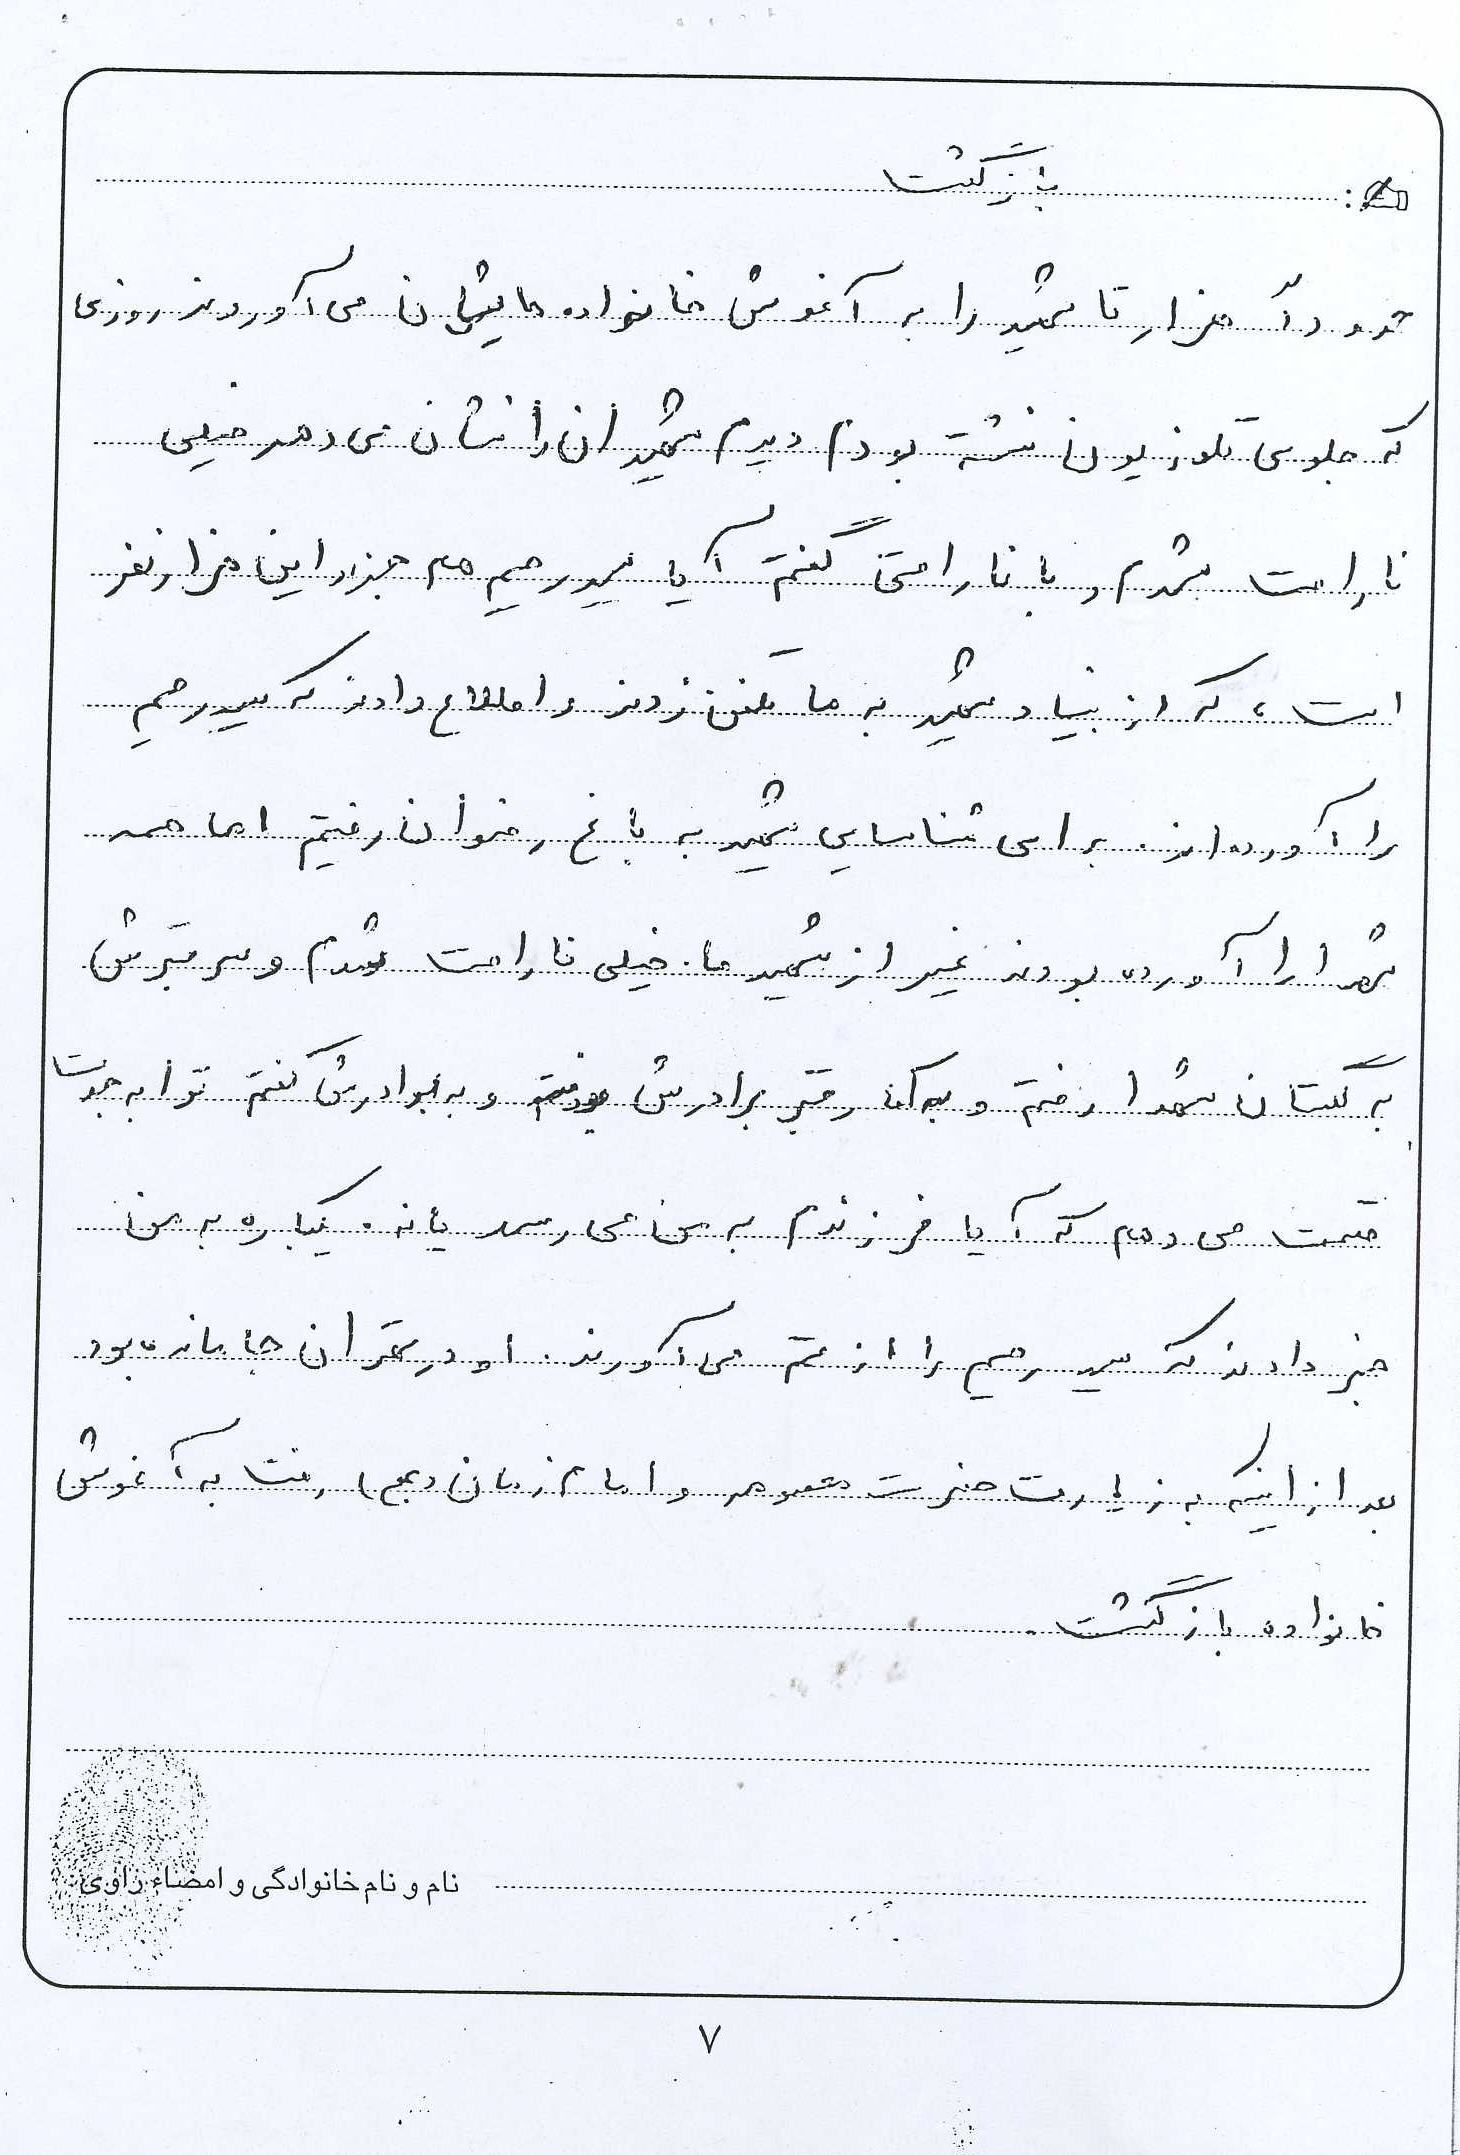 بازگشت
حدوداً هزار تا شهید را به آغوش خانواده هایشان می آوردند روزی
که جلوی تلوزیون نشسته بودم دیدم شهیدان را نشان می دهد خیلی
ناراحت شدم و با ناراحتی گفتم آیا سید رحیم هم جزء این هزار نفر
است، که از بنیاد شهید به ما تلفن زدند و اطلاع دادند که سید رحیم
را آورده اند. برای شناسایی شهید به باغ رضوان رفتیم اما همه
شهدا را آورده بودند غیر از شهید ما. خیلی ناراحت شدم و سر قبرش
به گلستان شهدا رفتم و کنار قبر برادرش و به برادرش گفتم تو را به جدت
قسمت می دهم که آیا فرزندم به من می رسد یا نه. یکباره به من
خبر دادند که سید رحیم را از قم می آورند. او در تهران جا مانده بود
بعد از اینکه به زیارت حضرت معصومه و امام زمان (عج) رفت به آغوش
خانواده بازگشت.
نام و نام خانوادگی و امضاء راوی:
۷